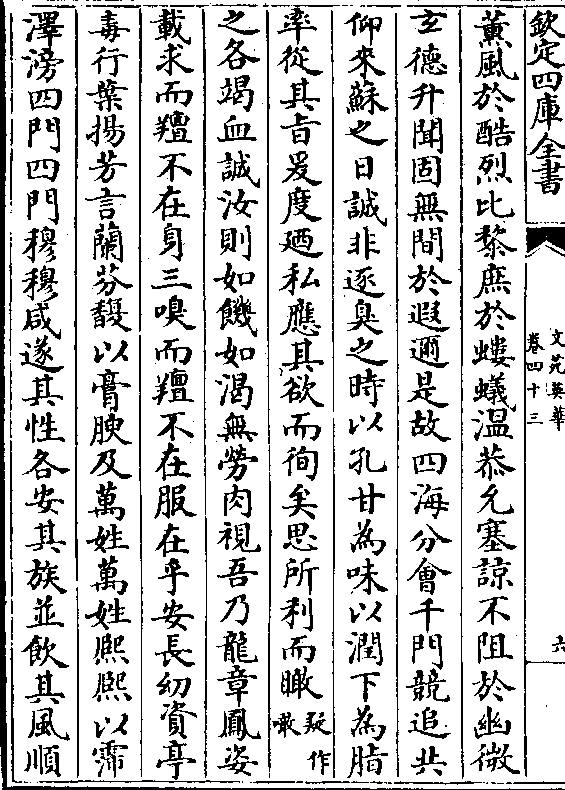 欽定四庫全書
文苑英華
卷四十三
六
薰風於酷烈比黎庶於螻蟻温恭允塞諒不阻於幽微
玄德升聞固無間於遐邇是故四海分會千門競追共
仰來蘇之日誠非逐臭之時以孔甘為味以潤下為脂
率從其旨爰度廼私應其欲而徇矣思所利而瞰疑作噉
之各竭血誠汝則如饑如渴無勞肉視吾乃龍章鳳姿
載求而羶不在身三嗅而羶不在服在乎安長幼資亭
毒行葉揚芳言蘭芬馥以膏腴及萬姓萬姓熙熙以霈
澤滂四門四門穆穆咸遂其性各安其族並飲其風順